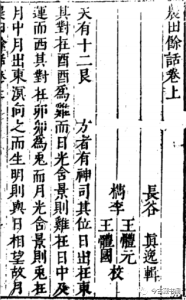 農田餘話卷上
長谷 眞逸輯
檇李 王體元
王體國 校
天有十二辰 方者有神司其位日出在東
其對在酉酉爲雞而日光含景則雞在日中及
運而西其對在卯卯爲兔而月光含景則兔在
月中月出東溟向之而生明則與日相望故月